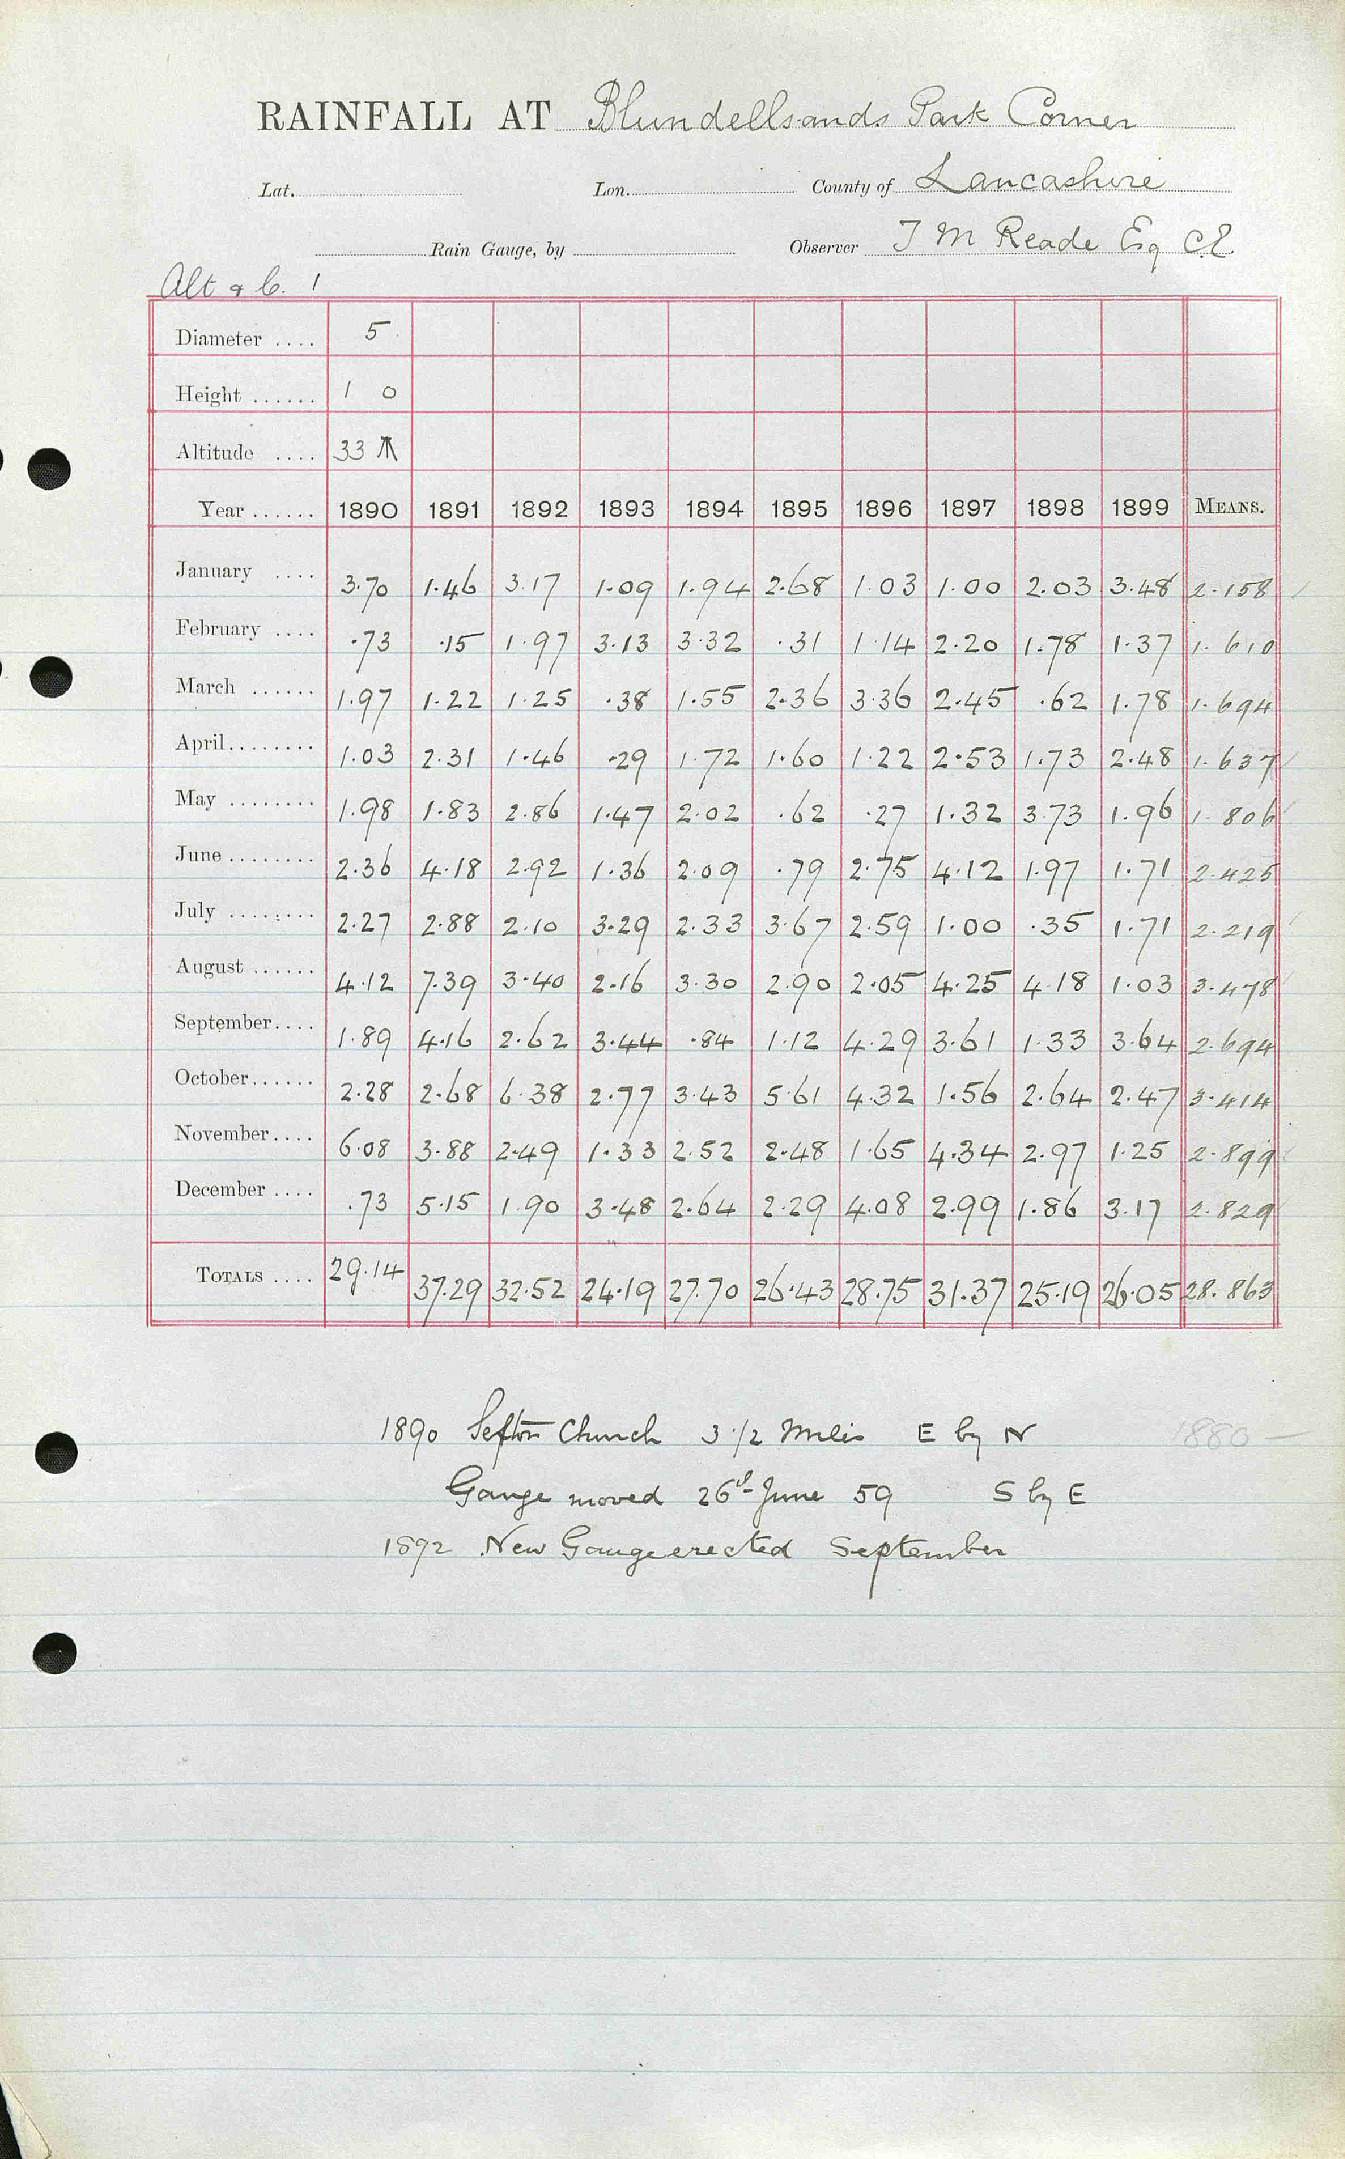 RAINFALL AT Blundellsands Park Corner
Lat. Lon. County of Lancashire
Rain Gauge, by Observer T M Reade Esq C.E.
Alt & C. 1
Diameter .... 5
Height ...... 1 0
Altitude .... 33
Year ...... 1890 1891 1892 1893 1894 1895 1896 1897 1898 1899 MEANS.
January .... 3.70 1.46 3.17 1.09 1.94 2.68 1.03 1.00 2.03 3.48 2.158
February .... .73 .15 1.97 3.13 3.32 .31 1.14 2.20 1.78 1.37 1.610
March ...... 1.97 1.22 1.25 .38 1.55 2.36 3.36 2.45 .62 1.78 1.694
April ........ 1.03 2.31 1.46 .29 1.72 1.60 1.22 2.53 1.73 2.48 1.637
May ........ 1.98 1.83 2.86 1.47 2.02 .62 .27 1.32 3.73 1.96 1.806
June ........ 2.36 4.18 2.92 1.36 2.09 .79 2.75 4.12 1.97 1.71 2.425
July ........ 2.27 2.88 2.10 3.29 2.33 3.67 2.59 1.00 .35 1.71 2.219
August ...... 4.12 7.39 3.40 2.16 3.30 2.90 2.05 4.25 4.18 1.03 3.478
September .... 1.89 4.16 2.62 3.44 .84 1.12 4.29 3.61 1.33 3.64 2.694
October ...... 2.28 2.68 6.38 2.77 3.43 5.61 4.32 1.56 2.64 2.47 3.414
November .... 6.08 3.88 2.49 1.33 2.52 2.48 1.65 4.34 2.97 1.25 2.899
December .... .73 5.15 1.90 3.48 2.64 2.29 4.08 2.99 1.86 3.17 2.829
TOTALS .... 29.14 37.29 32.52 24.19 27.70 26.43 28.75 31.37 25.19 26.05 28.863
1890 Sefton Church 3 1/2 Miles E by N 1880 —
Gauge moved 26 June 59 S by E
1892 New Gauge erected September